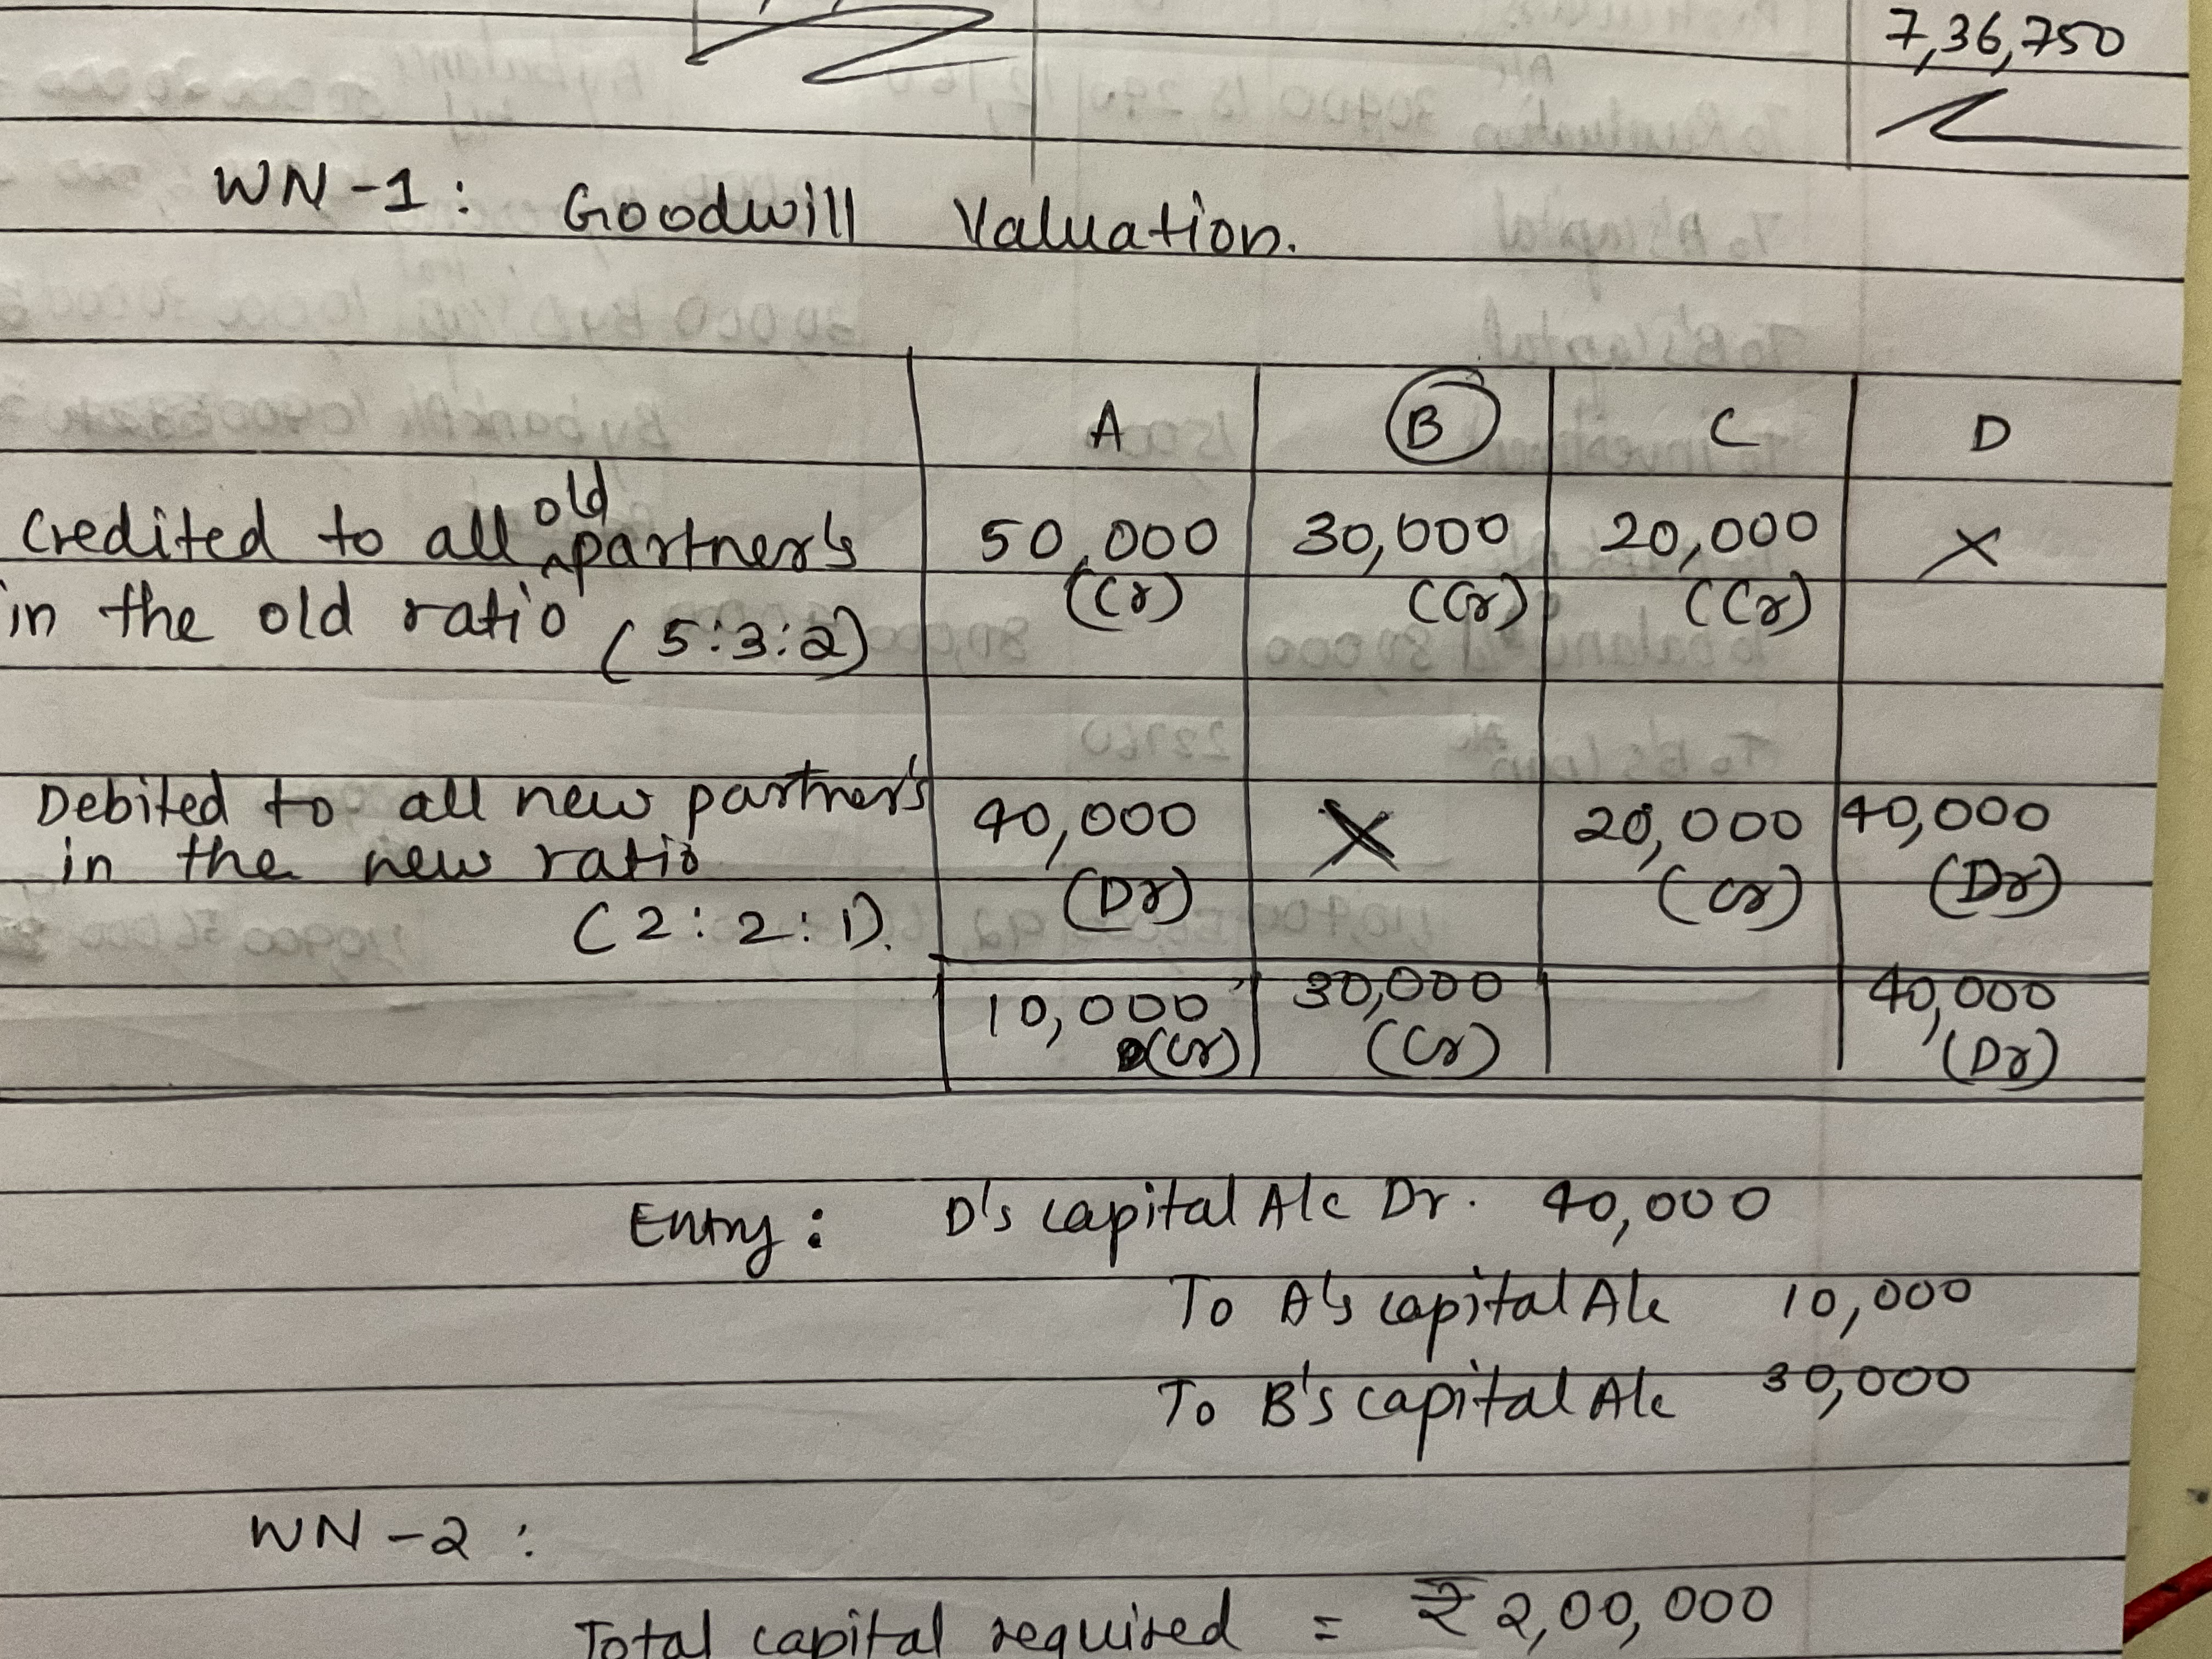 7,36,750
WN-1: Goodwill Valuation.
A B C D
Credited to all old partner's 50,000 30,000 20,000 X
in the old ratio (5:3:2) (Cr) (Cr) (Cr)
Debited to all new partner's 40,000 X 20,000 40,000
in the new ratio (Dr) (Cr) (Dr)
(2:2:1).
10,000 30,000 40,000
(Cr) (Cr) (Dr)
Entry: D's capital A/c Dr. 40,000
To A's capital A/c 10,000
To B's capital A/c 30,000
WN-2:
Total capital required = ₹ 2,00,000